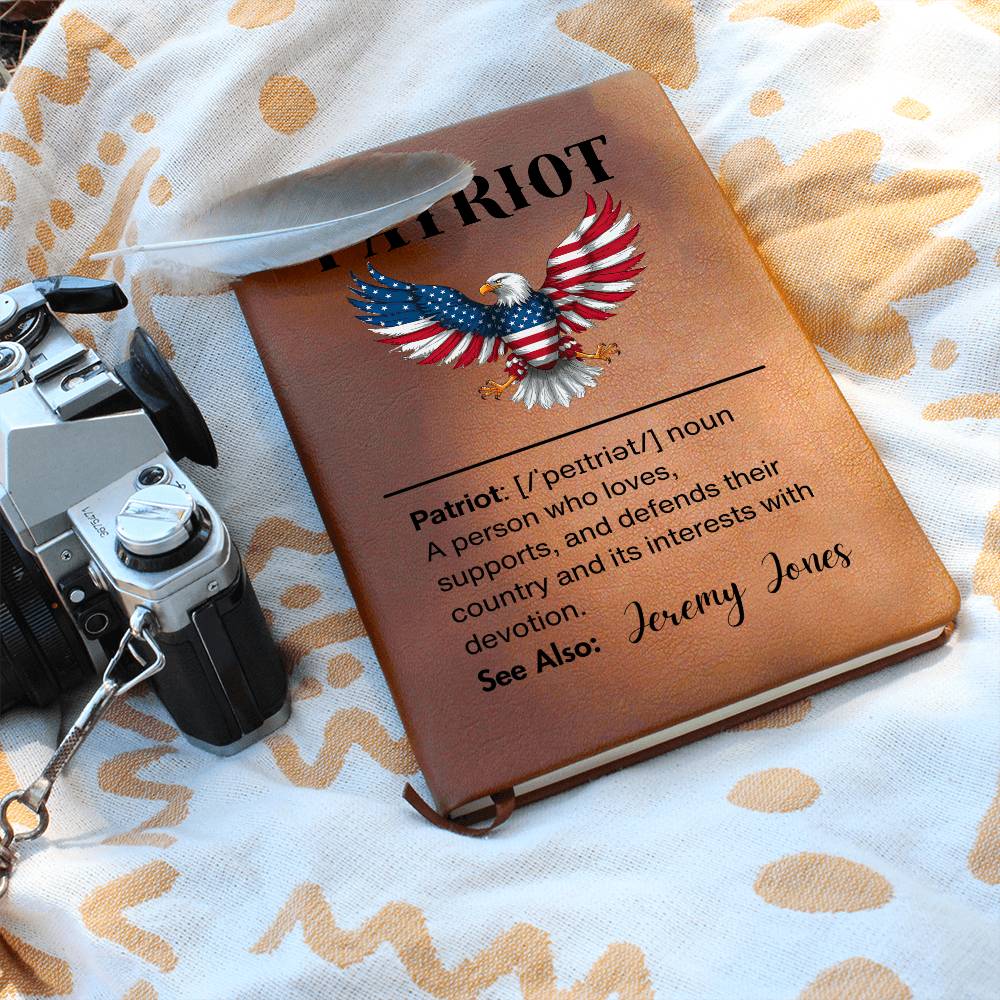 PATRIOT
Patriot: [/ˈpeɪtriət/] noun
A person who loves,
supports, and defends their
country and its interests with
devotion.
See Also: Jeremy Jones
3675471A